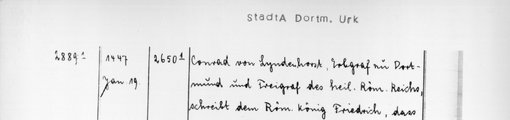 StadtA Dortm. Urk
2889¹ 1447 2650¹ Conrad von Lyndenhorst, Erbgraf zu Dort-
Jan 19 mund und Freigraf des heil. Röm. Reichs,
schreibt dem Röm. König Friedrich, dass